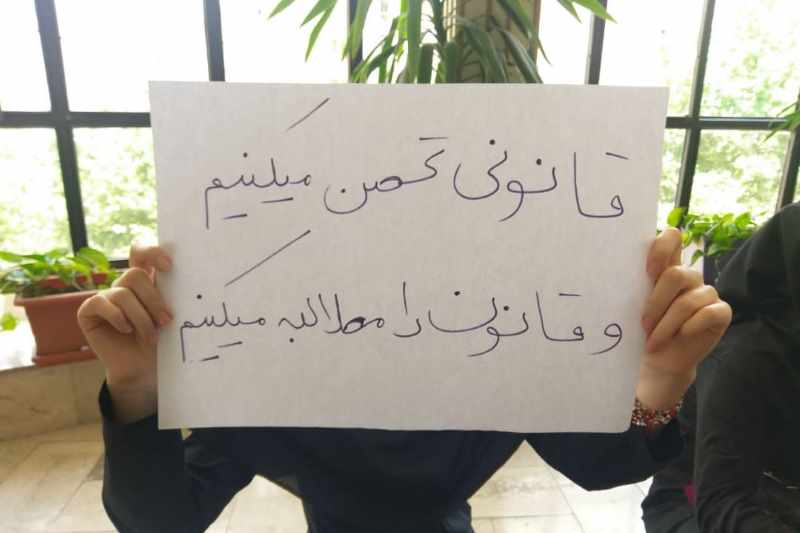 قانونی تحصن میکنیم
و قانون را مطالبه میکنیم